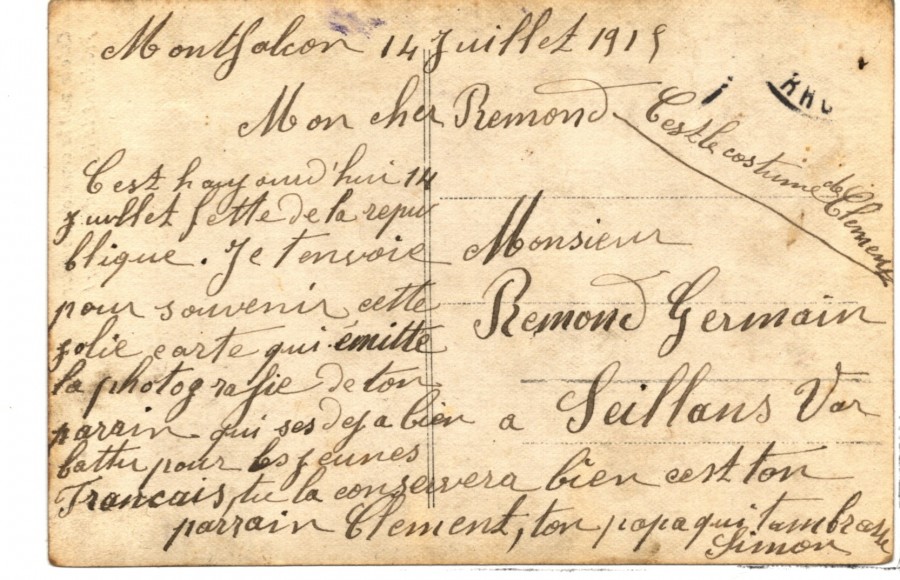 Montfalcon 14 Juillet 1915
Mon cher Remond
C'est le costume de Clement
C'est haujourd'hui 14
juillet fette de la repu
blique. Je t'envoie
pour souvenir cette
jolie carte qui émitte
la photografie de ton
parrin qui ses deja bien
battu pour les jeunes
Francais, tu la conservera bien cest ton
parrain Clement, ton papa qui t'ambrasse
Simon
Monsieur
Remond Germain
a Seillans Var